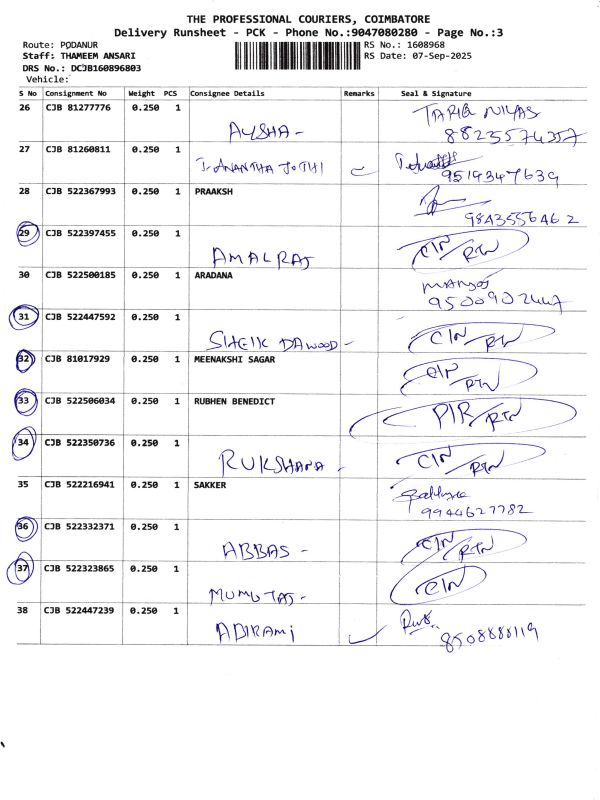 THE PROFESSIONAL COURIERS, COIMBATORE
Delivery Runsheet - PCK - Phone No.:9047080280 - Page No.:3
Route: PODANUR RS No.: 1608968
Staff: THAMEEM ANSARI RS Date: 07-Sep-2025
DRS No.: DCJB160896803
Vehicle:
S No Consignment No Weight PCS Consignee Details Remarks Seal & Signature
26 CJB 81277776 0.250 1 AYSHA - TARIQ NIYAS
88235574357
27 CJB 81260811 0.250 1 I. ANANTHA JOTHI
9519347639
28 CJB 522367993 0.250 1 PRAAKSH
9843556462
29 CJB 522397455 0.250 1 AMALRAJ CIN/RTN
30 CJB 522500185 0.250 1 ARADANA MANJOJ
9500902447
31 CJB 522447592 0.250 1 SHEIK DAWOOD - CIN/RTN
32 CJB 81017929 0.250 1 MEENAKSHI SAGAR CIN/RTN
33 CJB 522506034 0.250 1 RUBHEN BENEDICT PIR/RTN
34 CJB 522350736 0.250 1 RUKSHANA - CIN/RTN
35 CJB 522216941 0.250 1 SAKKER
9944627782
36 CJB 522332371 0.250 1 ABBAS - CIN/RTN
37 CJB 522323865 0.250 1 MUMUTAJ - CIN
38 CJB 522447239 0.250 1 ABIRAMI
8508888119